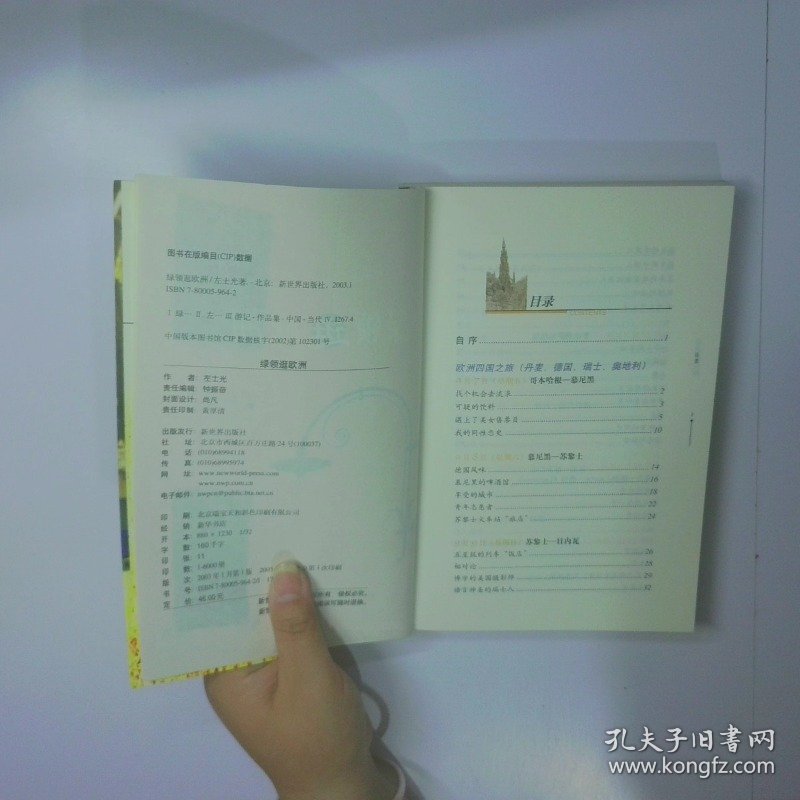 图书在版编目(CIP)数据
绿领逛欧洲/左士光著. - 北京: 新世界出版社, 2003.1
ISBN 7-80005-964-2
Ⅰ.绿… Ⅱ.左… Ⅲ.游记-作品集-中国-当代 Ⅳ.I267.4
中国版本图书馆CIP数据核字(2002)第102301号
绿领逛欧洲
作 者 左士光
责任编辑 钟振奋
封面设计
责任印制 黄厚清
出版发行 新世界出版社
社 址 北京市西城区百万庄路24号(100037)
电 话 (010)68994118
传 真 (010)68995974
网 址 www.newworld-press.com
www.nwp.com.cn
电子邮件 nwpcn@public.bta.net.cn
印 刷 北京瑞宝天和彩色印刷有限公司
经 销 新华书店
开 本 880×1230 1/32
字 数 160千字
印 张 11
印 数 1-6000册
版 次 2003年1月第1版 次印刷
书 号 ISBN7-80005-964-2/I
定 价
目录
CONTENTS
自序 1
欧洲四国之旅(丹麦、德国、瑞士、奥地利)
哥本哈根—慕尼黑
找个机会去流浪 2
可疑的饮料 3
遇上了美女售票员 5
我的同性恋史 10
慕尼黑—苏黎士
德国风味 14
慕尼黑的啤酒馆 16
享受的城市 18
青年志愿者 22
苏黎士火车站“旅店” 24
苏黎士—日内瓦
五星级的列车“饭店” 26
相对论 28
博学的美国摄影师 30
擅言神圣的瑞士人 32
孔夫子旧书网
www.kongfz.com